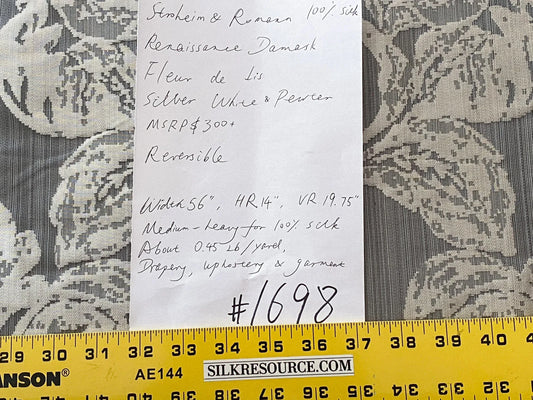 Stroheim & Romann 100% silk
Renaissance Damask
Fleur de Lis
Silver White & Pewter
MSRP $300+
Reversible
Width 56", HR 14", VR 19.75"
Medium-heavy for 100% silk
About 0.45 Lb/yard,
Drapery, upholstery & garment
#1698
29 30 31 32 33 34 35 36 37 38 39 40 41 42
ANSON® AE144 SILKRESOURCE.COM